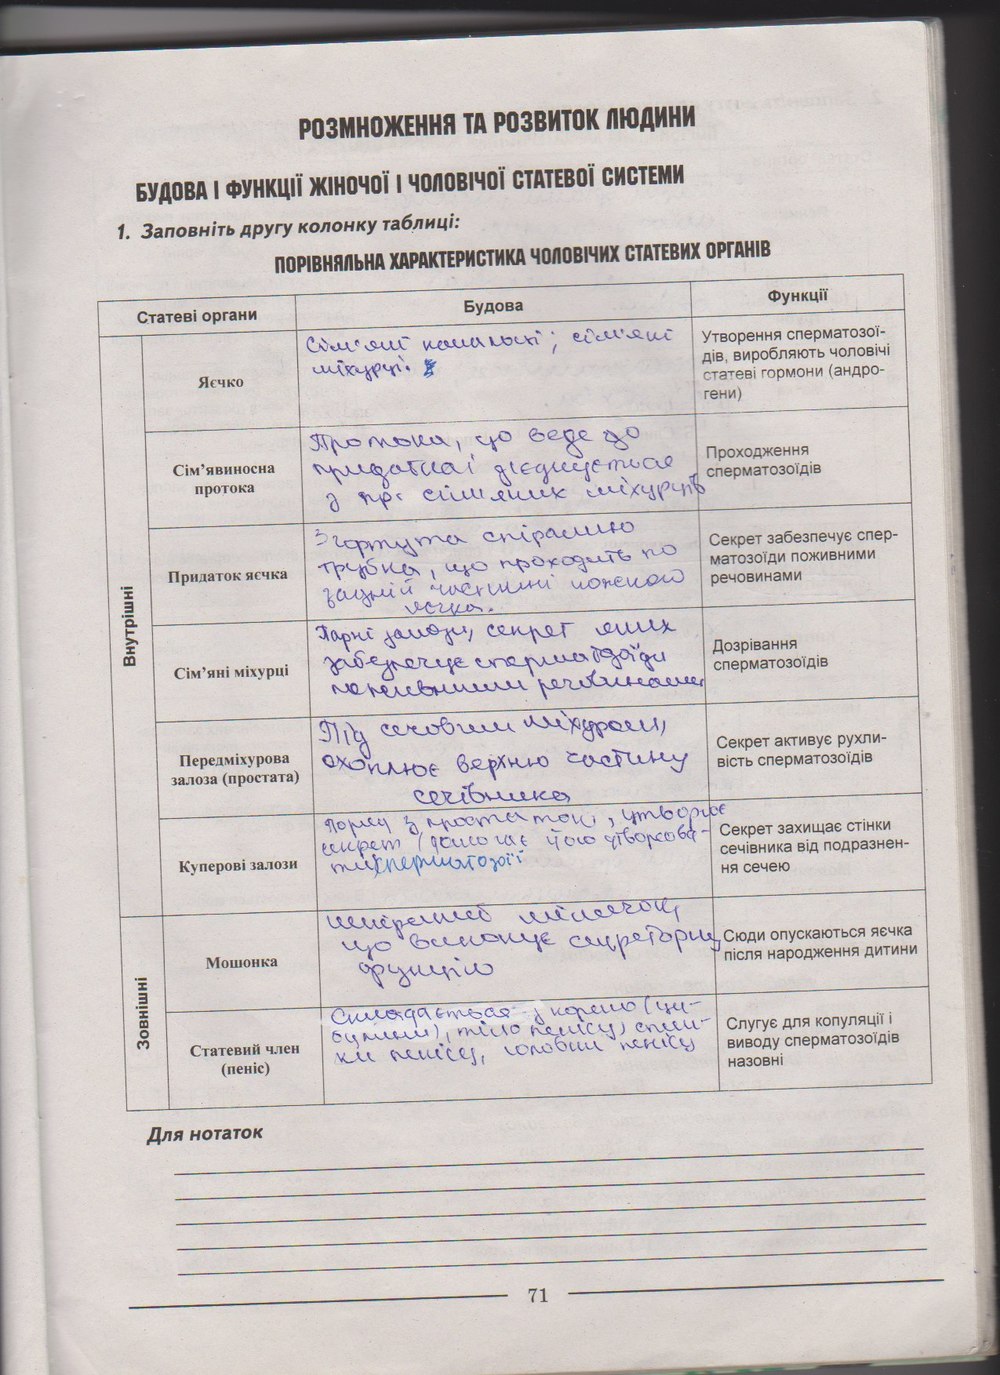 РОЗМНОЖЕННЯ ТА РОЗВИТОК ЛЮДИНИ
БУДОВА І ФУНКЦІЇ ЖІНОЧОЇ І ЧОЛОВІЧОЇ СТАТЕВОЇ СИСТЕМИ
1. Заповніть другу колонку таблиці:
ПОРІВНЯЛЬНА ХАРАКТЕРИСТИКА ЧОЛОВІЧИХ СТАТЕВИХ ОРГАНІВ
Статеві органи
Будова
Функції
Внутрішні
Яєчко
Сім'яні канальці; сім'яні
міхурці.
Утворення сперматозої-
дів, виробляють чоловічі
статеві гормони (андро-
гени)
Сім'явиносна
протока
Протока, що веде до
придатка і з'єднується
з пр. сім'яних міхурців
Проходження
сперматозоїдів
Придаток яєчка
Згорнута спіраллю
трубка, що проходить по
задній частині кожного
яєчка.
Секрет забезпечує спер-
матозоїди поживними
речовинами
Сім'яні міхурці
Парні залози, секрет яких
забезпечує сперматозоїди
поживними речовинами
Дозрівання
сперматозоїдів
Передміхурова
залоза (простата)
Під сечовим міхуром,
охоплює верхню частину
сечівника
Секрет активує рухли-
вість сперматозоїдів
Куперові залози
Поряд з простатою, утворює
секрет, його утворюва-
ти сперматозоїї
Секрет захищає стінки
сечівника від подразнен-
ня сечею
Зовнішні
Мошонка
мішечок,
що виконує секреторну
функцію
Сюди опускаються яєчка
після народження дитини
Статевий член
(пеніс)
Складається з кореню (ци-
булини), тіло пенісу, спин-
ки пенісу, головки пенісу
Слугує для копуляції і
виводу сперматозоїдів
назовні
Для нотаток
71